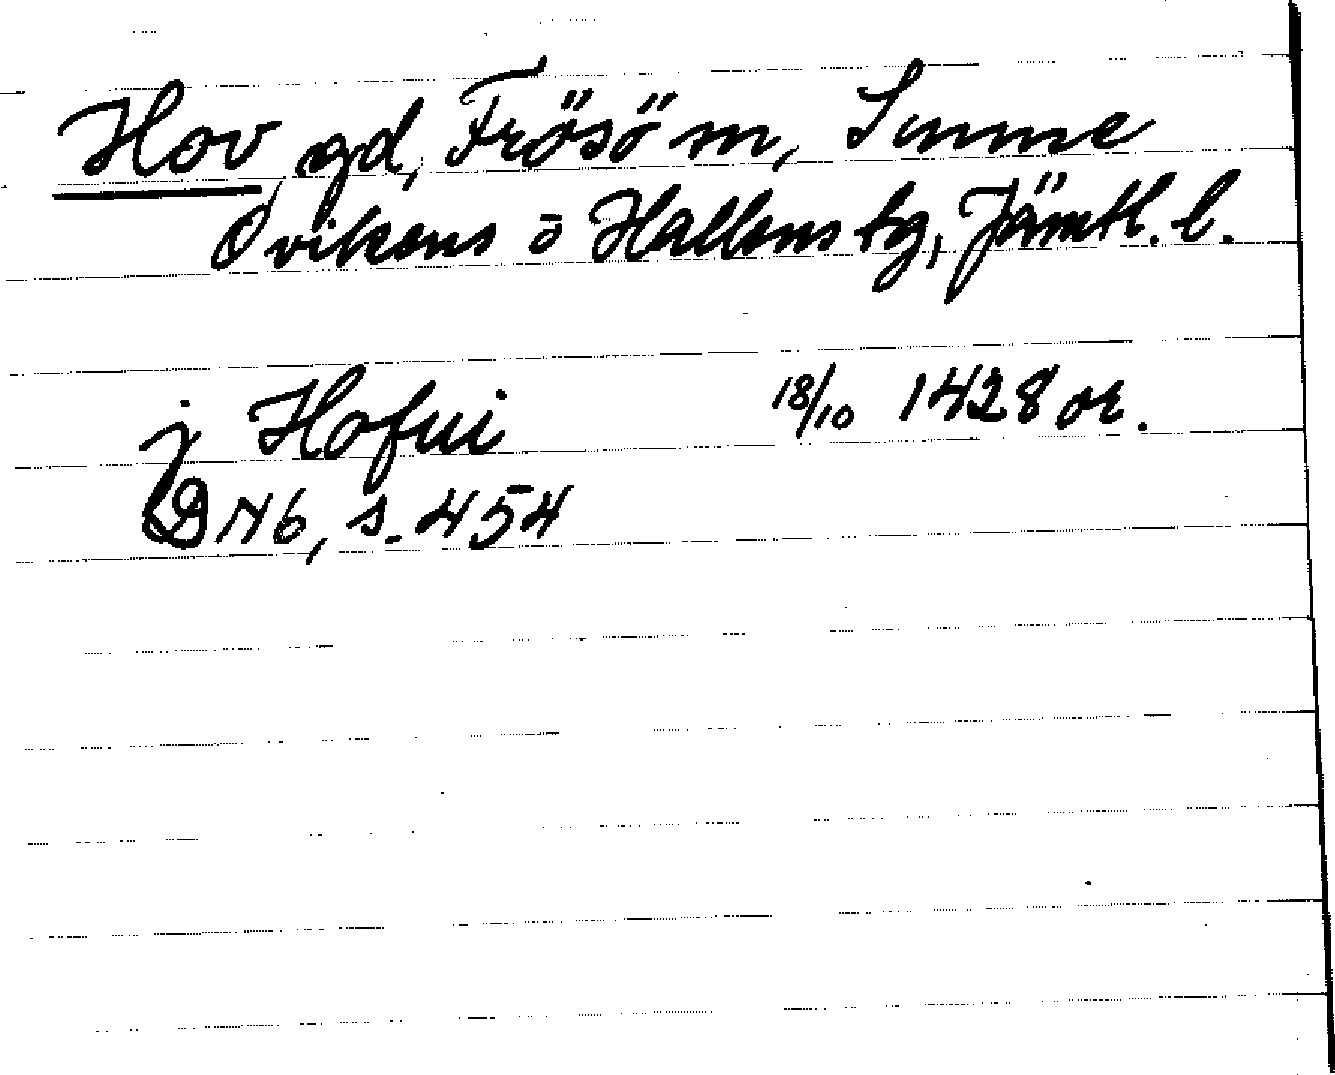 Hov gd, Frösö sn, Sunne
Ovikens o Hallens tg, Jämtl. l.
j Hofui 18/10 1428 or.
DN 6, s. 454